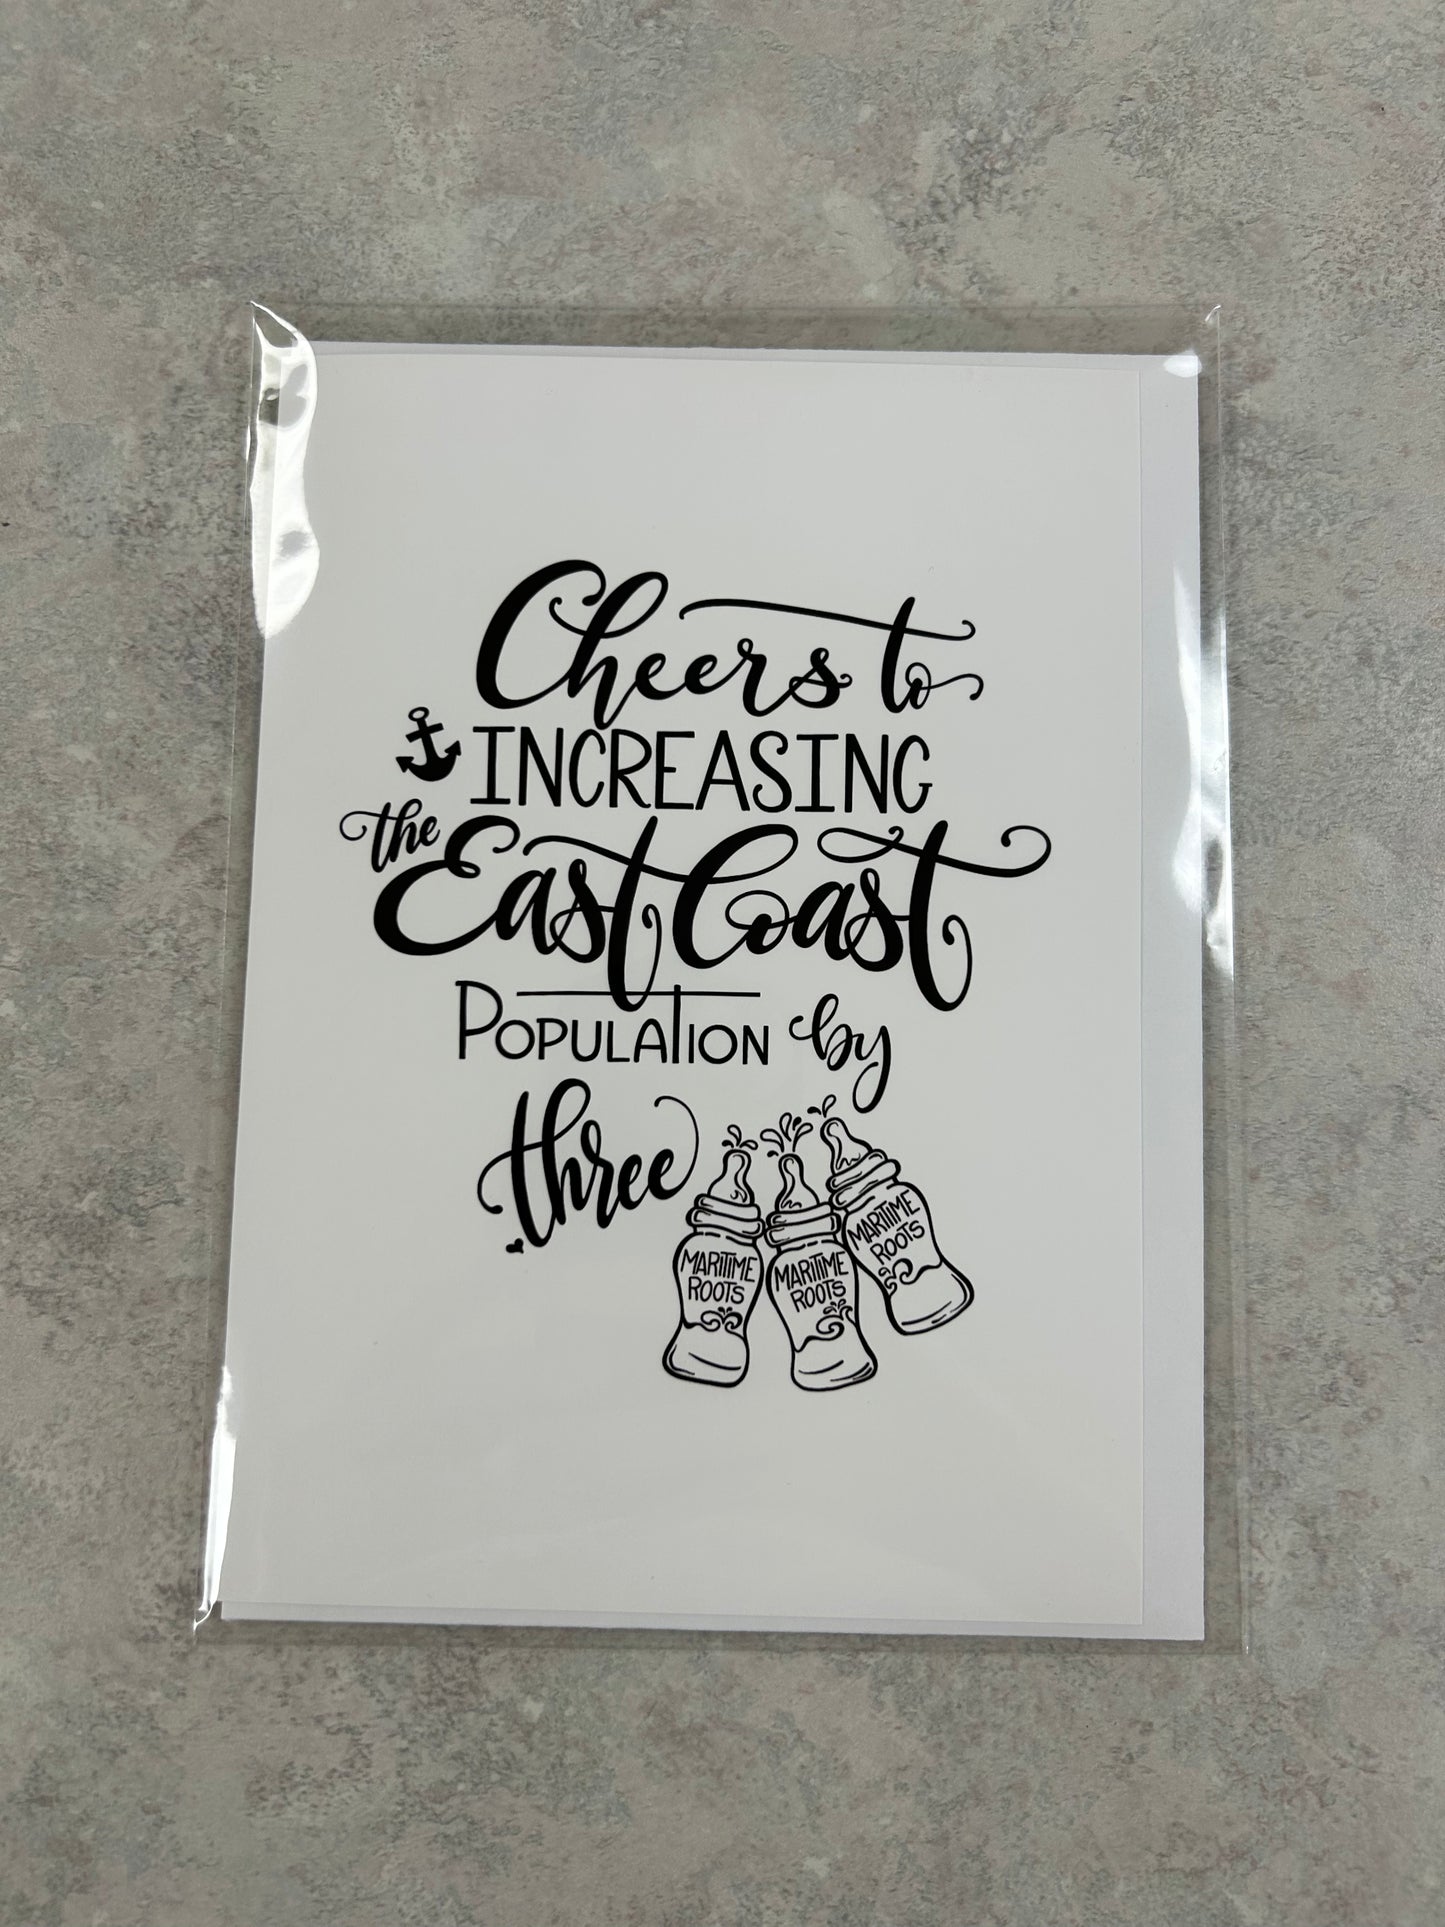 Cheers to
INCREASING
the
East Coast
POPULATION by
three
MARITIME
ROOTS
MARITIME
ROOTS
MARITIME
ROOTS